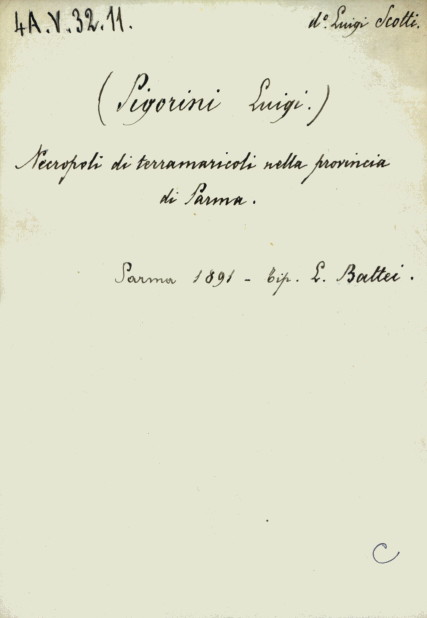 4A.V.32.11.
d.º Luigi Scotti.
(Pigorini Luigi.)
Necropoli di terramaricoli nella provincia
di Parma.
Parma 1891 - Tip. L. Battei.
C